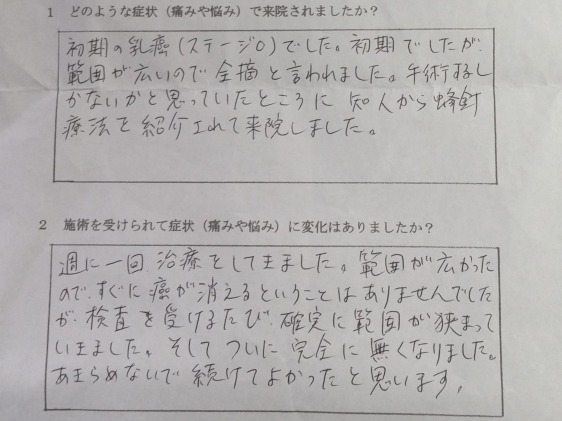 1 どのような症状（痛みや悩み）で来院されましたか？
初期の乳癌（ステージ0）でした。初期でしたが、
範囲が広いので全摘と言われました。手術するし
かないかと思っていたところに 知人から蜂針
療法を紹介されて来院しました。
2 施術を受けられて症状（痛みや悩み）に変化はありましたか？
週に一回 治療をしてきました。範囲が広かった
ので、すぐに癌が消えるということはありませんでした
が、検査を受けるたび、確実に範囲が狭まって
いきました。そしてついに完全に無くなりました。
あきらめないで続けてよかったと思います。